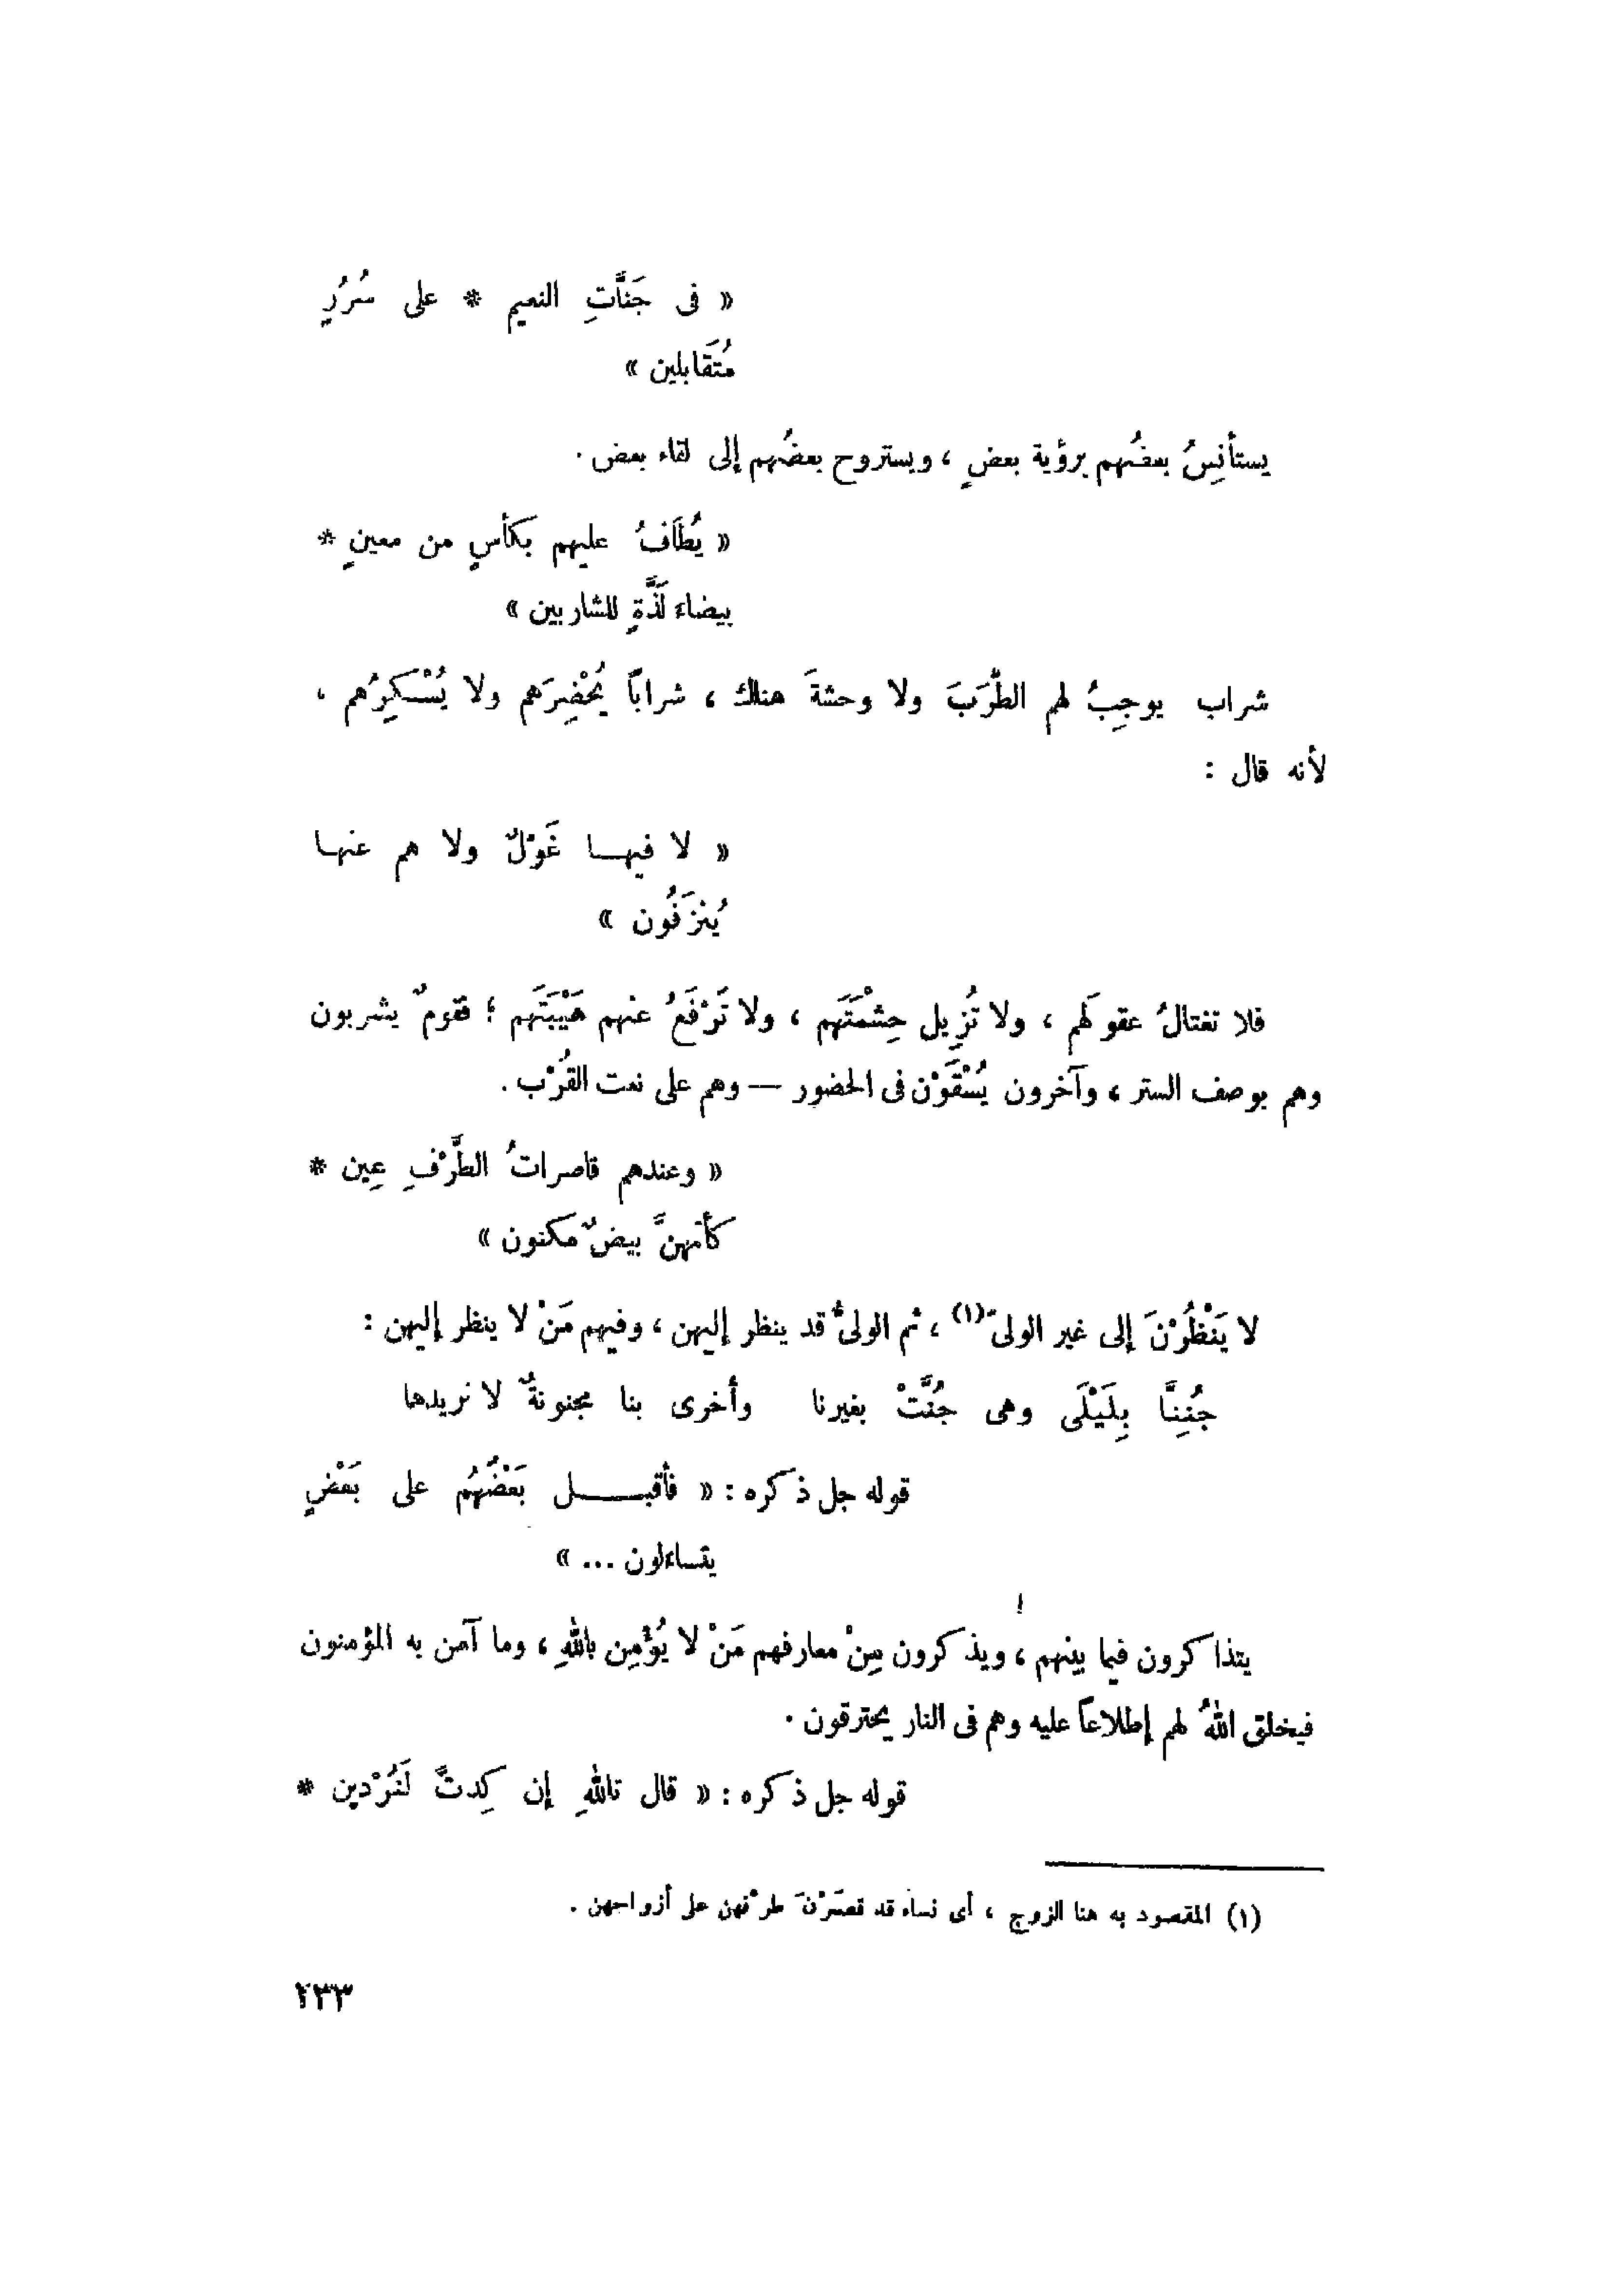 « فى جَنَّاتِ النعيم * على سُرُرٍ
مُتَقَابلين »
يستأنِسُ بعضُهم برؤية بعضٍ ، ويستروح بعضُهم إلى لقاء بعض .
« يُطَافُ عليهم بكأسٍ من معينٍ *
بيضاء لَذَّةٍ للشاربين »
شراب يوجِبُ لهم الطَّرَبَ ولا وحشةَ هناك ، شراباً يُحْضِرَهم ولا يُسْكِرُهم ،
لأنه قال :
« لا فيها غَوْلٌ ولا هم عنها
يُنْزَفُون »
فلا تغتالُ عقولَهم ، ولا تُزِيل حِشْمَتَهم ، ولا تَرْفَعُ عنهم هَيْبَتَهم ؛ فقومٌ يشربون
وهم بوصف الستر ، وآخرون يُسْقَوْن فى الحضور — وهم على نعت القُرْب .
« وعندهم قاصراتُ الطَّرْفِ عِين *
كأنهنَّ بيضٌ مكنون »
لا يَنْظُرْنَ إلى غير الولىّ (١) ، ثم الولىُّ قد ينظر إليهن ، وفيهم مَنْ لا ينظر إليهن :
جُنِنَّا بِلَيْلَى وهى جُنَّتْ بغيرنا وأخرى بنا مجنونةٌ لا نريدها
قوله جل ذكره : « فأقبل بَعْضُهُم على بَعْضٍ
يتساءلون ... »
يتذاكرون فيما بينهم ، ويذكرون مِنْ معارفهم مَنْ لا يُؤْمِن باللهِ ، وما آمن به المؤمنون
فيخلق اللهُ لهم إطلاعاً عليه وهم فى النار يحترقون .
قوله جل ذكره : « قال تاللهِ إن كِدتَّ لَتُرْدين *
(١) المقصود به هنا الزوج ، أى نساء قد قصَرْنَ طرْفهن على أزواجهن .
٢٣٣